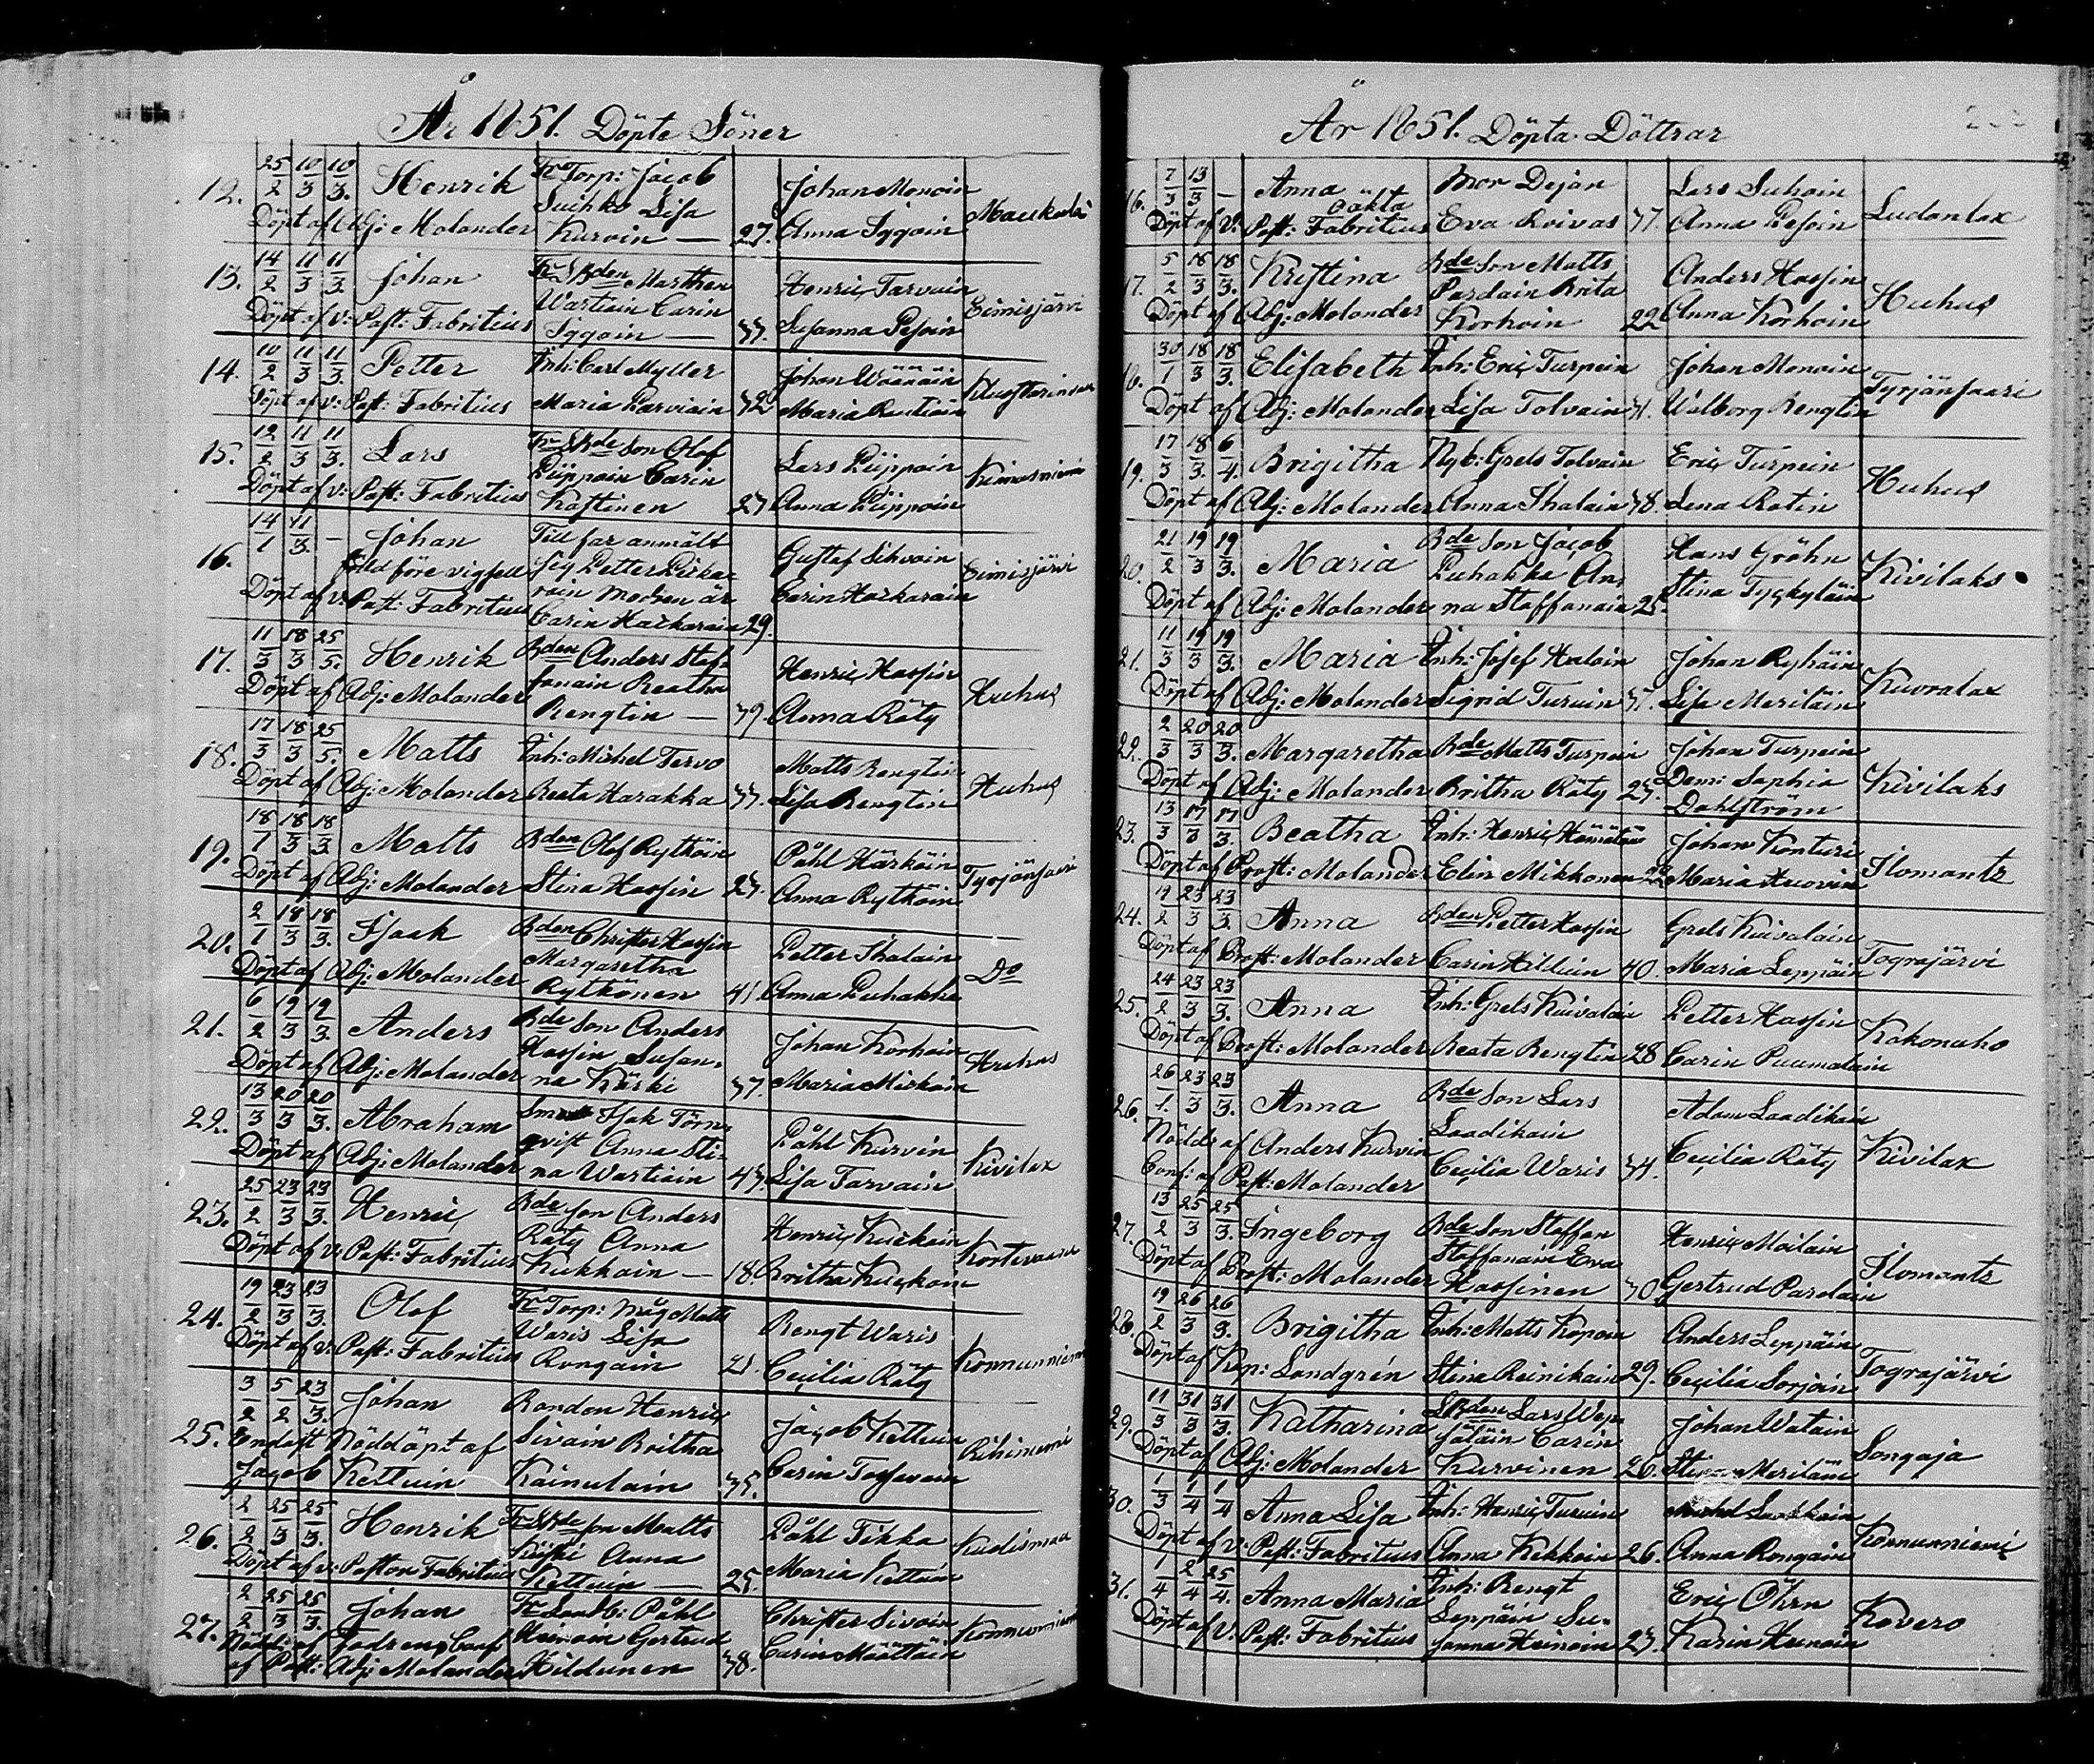 År 1851. Döpte Söner
12. 25/2 10/3 10/3. Henrik Fr Torp: Jacob Johan Monoin
Suihko Lisa Maukola
Döpt af Adj: Molander Kurvin — 27. Anna Iggoin
13. 14/2 11/3 11/3. Johan Fr SBden Marthen Henric Tarvain
Wartiain Carin Eimisjärvi
Döpt af v: Past: Fabritius Iggoin — 33. Susanna Pesoin
14. 10/2 11/3 11/3. Petter Inh: Carl Myller Johan Wäänäin
Döpt af v: Past: Fabritius Maria Parviain 32 Maria Rutiain
15. 12/2 11/3 11/3. Lars Fr SBde Son Olof Lars Piippoin
Piippoin Carin
Döpt af v: Past: Fabritius Kastinen 27 Anna Piippoin
16. 14/1 11/3. — Johan Till far anmält Gustaf Sihvoin
född före vigsell sig Petter Pirka= Eimisjärvi
roin Modren är Carin Harkarain
Döpt af v: Past: Fabritius Carin Harkarain 29.
17. 11/3 18/3 25/5. Henrik Bden Anders Stef= Henric Hassin
fanain Beatha Huhus
Döpt af Adj: Molander Bengtin — 39. Anna Räty
18. 17/3 18/3 25/5. Matts Inh: Michel Tervo Matts Bengtin
Huhus
Döpt af Adj: Molander Beata Harakka 33. Lisa Bengtin
19. 18/1 18/3 18/3 Matts Bden Olof Rytköin Påhl Härköin
Tyrjänsaari
Döpt af Adj: Molander Stina Hassin 23. Anna Rytköin
20. 2/1 18/3 18/3. Isaak Bden Christer Hassin Petter Ihalain
Margaretha Do
Döpt af Adj: Molander Rytkönen 41. Anna Puhakka
21. 6/2 19/3 19/3. Anders Bde Son Anders Johan Korhoin
Hassin Susan= Huhus
Döpt af Adj: Molander na Kärki 37. Maria Miskain
22. 13/3 20/3 20/3. Abraham Isak Törn=
qvist Anna Sti= Påhl Kurvin Kivilax
Döpt af Adj: Molander na Wartiain 43. Lisa Tarvain
23. 25/2 23/3 23/3. Henric Bde Son Anders Henric
Räty Anna Kortevaara
Döpt af v: Past: Fabritius Kukkoin — 18.
24. 19/2 23/3 23/3. Olof Fr Torp: Måg Matts Bengt Waris
Waris Lisa Konnunniemi
Döpt af v: Past: Fabritius Rongain 21. Cecilia Räty
25. 3/2 5/2 23/3. Johan Bonden Henric Jacob Kettuin
Endast Nöddöpt af Sivoin Britha
Jacob Kettuin Kainulain 35. Carin Torvain
26. 2/2 25/3 25/3. Henrik Fr SBde Son Matts Påhl Tikka
Kiiski Anna Kuolismaa
Döpt af v: Pastor Fabritius Kettuin — 25. Maria Kettuin
27. 2/2 25/3 25/3. Johan Fr Landb: Påhl Christer Sivoin
Nödd: af Fadren, Conf Heinoin Gertrud Konnunniemi
af Past: Adj: Molander Hildunen 38. Carin Määttäin
År 1851. Döpta Döttrar
16. 7/3 13/3 — Anna Mor Dejan Lars Suhoin
oäkta Ludanlax
Döpt af V: Past: Fabritius Eva Roivas 37. Anna Pesoin
17. 5/2 18/3 18/3. Kristina Bde Son Matts Anders Hassin
Pardain Brita Huhus
Döpt af Adj: Molander Korhoin 22 Anna Korhoin
18. 30/1 18/3 18/3. Elisabeth Inh: Eric Turpein Johan Monoin
Tyrjänsaari
Döpt af Adj: Molander Lisa Tolvain 31. Walborg Bengtin
19. 17/3 18/3 6/4. Brigitha Nyb: Grels Tolvain Eric Turpein
Huhus
Döpt af Adj: Molander Anna Ihalain 38. Lena Rotin
20. 21/2 19/3 19/3. Maria Bde Son Jacob Hans Gröhn
Puhakka An= Kivilaks
Döpt af Adj: Molander na Staffanain 25. Stina Tyckyläin
21. 11/3 19/3 19/3. Maria Inh: Josef Johan Ryhäin
Kuoralax
Döpt af Adj: Molander Sigrid Turuin 37. Lisa Meriläin
22. 2/3 20/3 20/3. Margaretha Bde Matts Turpein Johan Turpein
Dem: Sophia Kivilaks
Döpt af Adj: Molander Britha Räty 23. Dahlström
23. 13/3 17/3 17/3. Beatha Inh: Henric Hämäläin Johan Konturi
Ilomants
Döpt af Prost: Molander Elin Mikkonen 22 Maria Huovin
24. 19/2 23/3 23/3. Anna Bden Petter Hassin Grels Kuivalain
Tograjärvi
Döpt af Prost: Molander Carin Hilduin 40. Maria Leppäin
25. 24/2 23/3 23/3. Anna Inh: Grels Kuivalain Petter Hassin
Kokonaho
Döpt af Prost: Molander Beata Bengtin 28 Carin Puumalain
26. 26/1. 23/3 23/3. Anna Bde Son Lars Adam Laadikain
Nödd: af Anders Kurvin Laadikain Kivilax
Conf: af Past: Molander Cecilia Waris 34. Cecilia Räty
27. 13/2 25/3 25/3. Ingeborg Bde Son Staffan Henric Moilain
Staffanain Eva Ilomants
Döpt af Prost: Molander Hassinen 30 Gertrud Parolain
28. 19/2 26/3 26/3. Brigitha Inh: Matts Kopoin Anders Leppäin
Tograjärvi
Döpt af Kap: Landgrén Stina Reinikain 29. Cecilia Sorjoin
29. 11/3 31/3 31/3. Katharina SBden Lars Wep= Johan Watain
säläin Carin Songaja
Döpt af Adj: Molander Kurvinen 26. Stina Meriläin
30. 1/3 1/4 1/4 Anna Lisa Inh: Henric Turuin Michel
Konnunniemi
Döpt af V: Past: Fabritius Anna Kekkoin 26. Anna Rongain
31. 1/4 2/4 25/4. Anna Maria Inh: Bengt Eric Öhrn
Leppäin Su= Kovero
Döpt af V: Past: Fabritius sanna Heinoin 23. Karin Heinoin